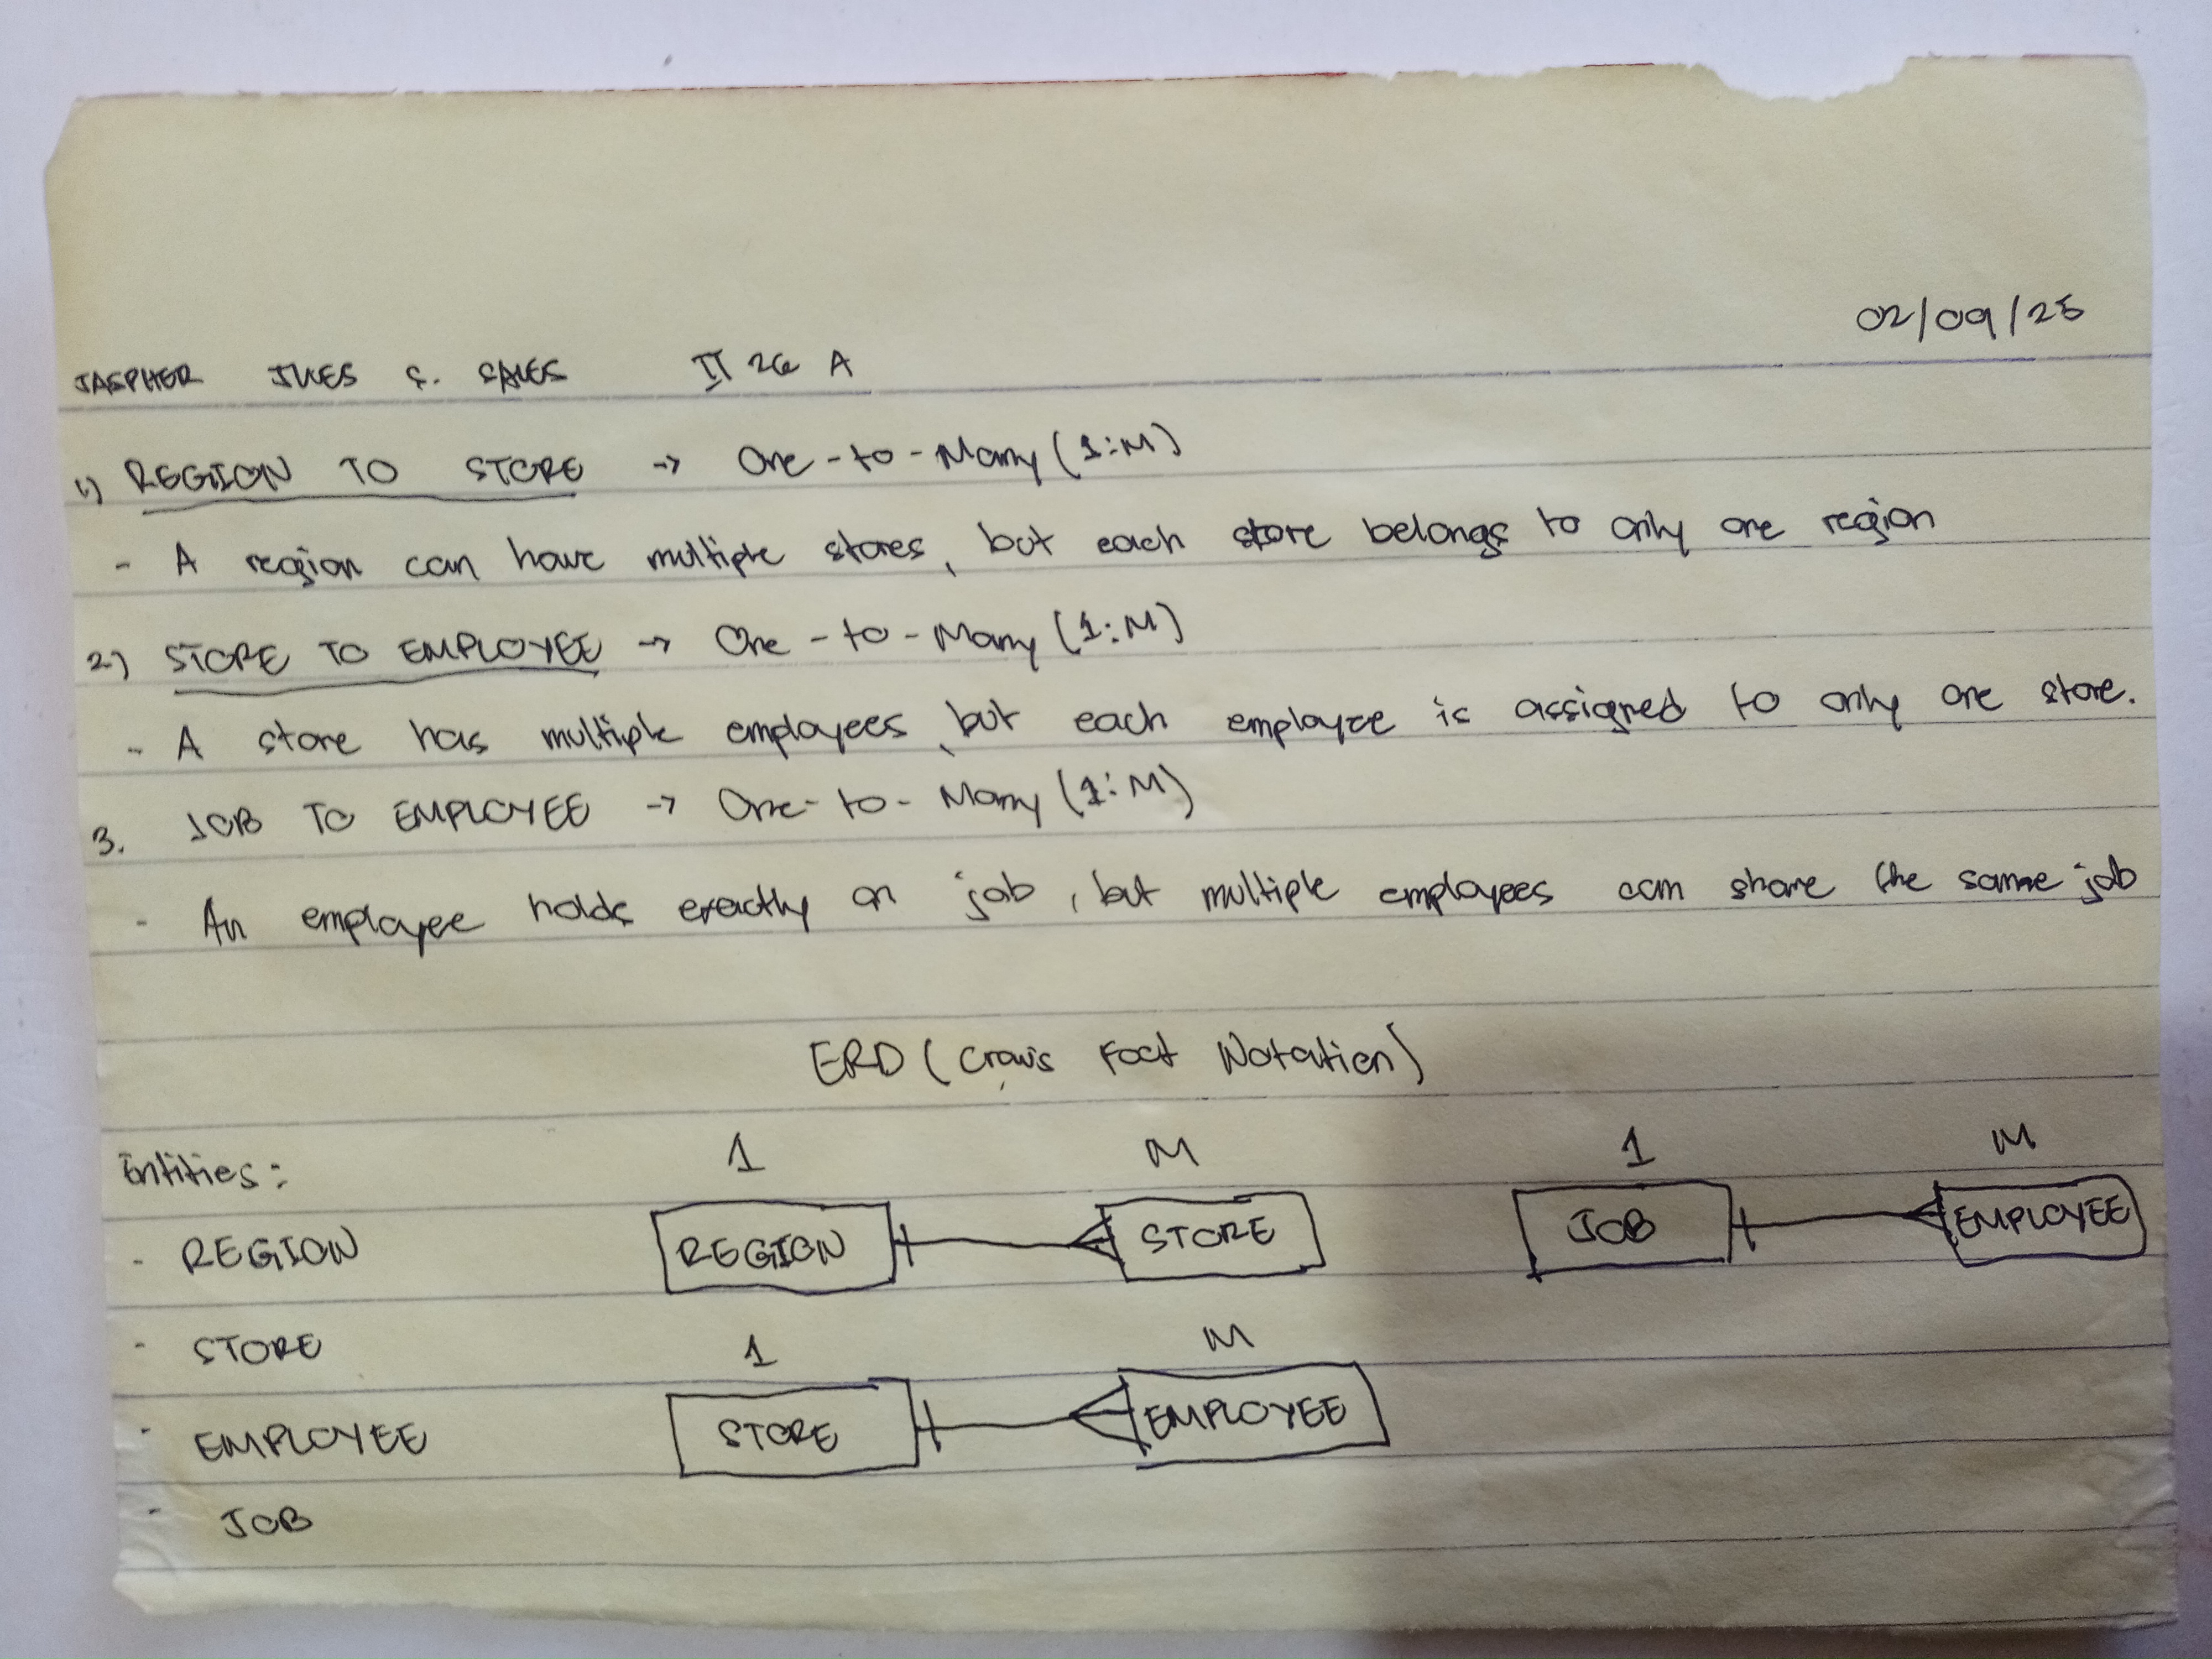 02/09/25
JASPHER JULES S. SALES IT 26 A
1) REGION TO STORE → One-to-Many (1:M)
- A region can have multiple stores, but each store belongs to only one region
2) STORE TO EMPLOYEE → One-to-Many (1:M)
- A store has multiple employees, but each employee is assigned to only one store.
3. JOB TO EMPLOYEE → One-to-Many (1:M)
- An employee holds exactly on job, but multiple employees can share the same job
ERD (Crow's Foot Notation)
Entities: 1 M 1 M
- REGION REGION STORE JOB EMPLOYEE
- STORE 1 M
- EMPLOYEE STORE EMPLOYEE
- JOB